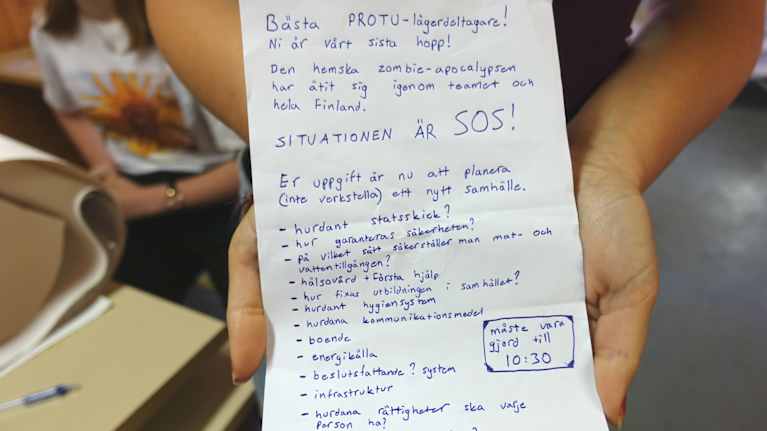 Bästa PROTU-lägerdeltagare!
Ni är vårt sista hopp!
Den hemska zombie-apocalypsen
har ätit sig igenom teamet och
hela Finland.
SITUATIONEN ÄR SOS!
Er uppgift är nu att planera
(inte verkställa) ett nytt samhälle.
- hurdant statsskick?
- hur garanteras säkerheten?
- på vilket sätt säkerställer man mat- och
vattentillgången?
- hälsovård + första hjälp
- hur fixas utbildningen i samhället?
- hurdant hygiensystem
- hurdana kommunikationsmedel
- boende
- energikälla
- beslutsfattande? system
- infrastruktur
- hurdana rättigheter ska varje
person ha?
måste vara
gjord till
10:30